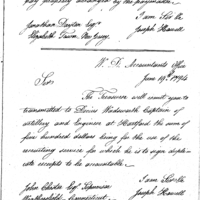 pay properly arranged by the paymaster.
I am Sir &c
Jonathan Dayton Esqr
Joseph Howell
Elizabeth Town New Jersey
W. D. Accountants Office
June 19th 1794
Sir
The Treasurer will remit you to
transmitted to Decius Wadsworth Captain of
Artillery and Engineer at Hartford the sum of
five hundred dollars being for the use of the
recruiting service for which he is to sign dupli-
cate receipts to be accountable.
I am Sir &c
John Chester Esqr Supervisor
Joseph Howell
Weathersfield, Connecticut